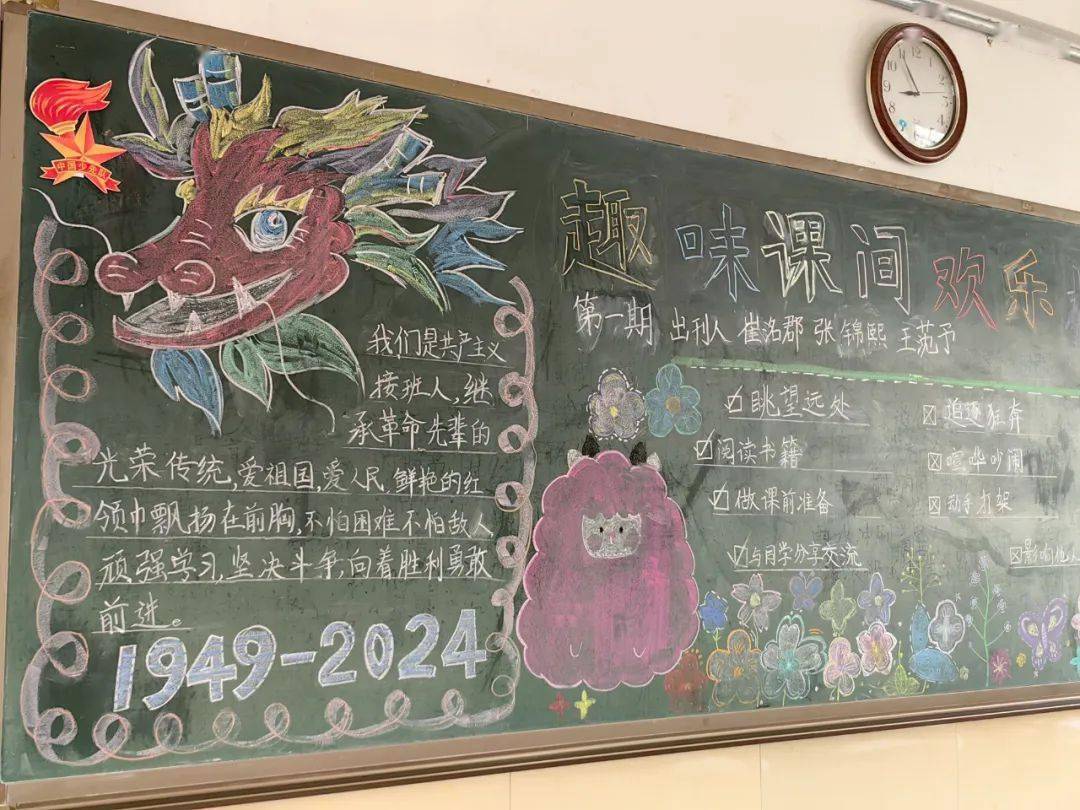 中国少先队
我们是共产主义
接班人,继
承革命先辈的
光荣传统,爱祖国,爱人民,鲜艳的红
领巾飘扬在前胸,不怕困难不怕敌人
顽强学习,坚决斗争,向着胜利勇敢
前进。
1949-2024
趣味课间 欢乐
第一期 出刊人 崔洺郡 张锦熙 王苑予
☑眺望远处
☑阅读书籍
☑做课前准备
☑与同学分享交流
☒追逐狂奔
☒喧哗吵闹
☒动手打架
☒影响他人
12